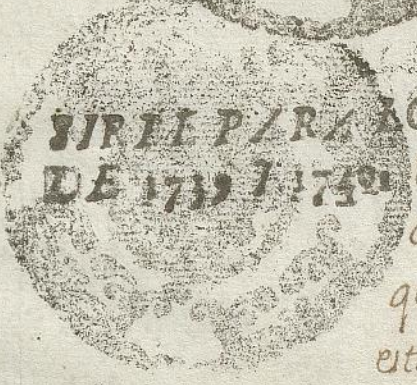 SIRVE PARA LO
DE 1739 I 1740
q
est